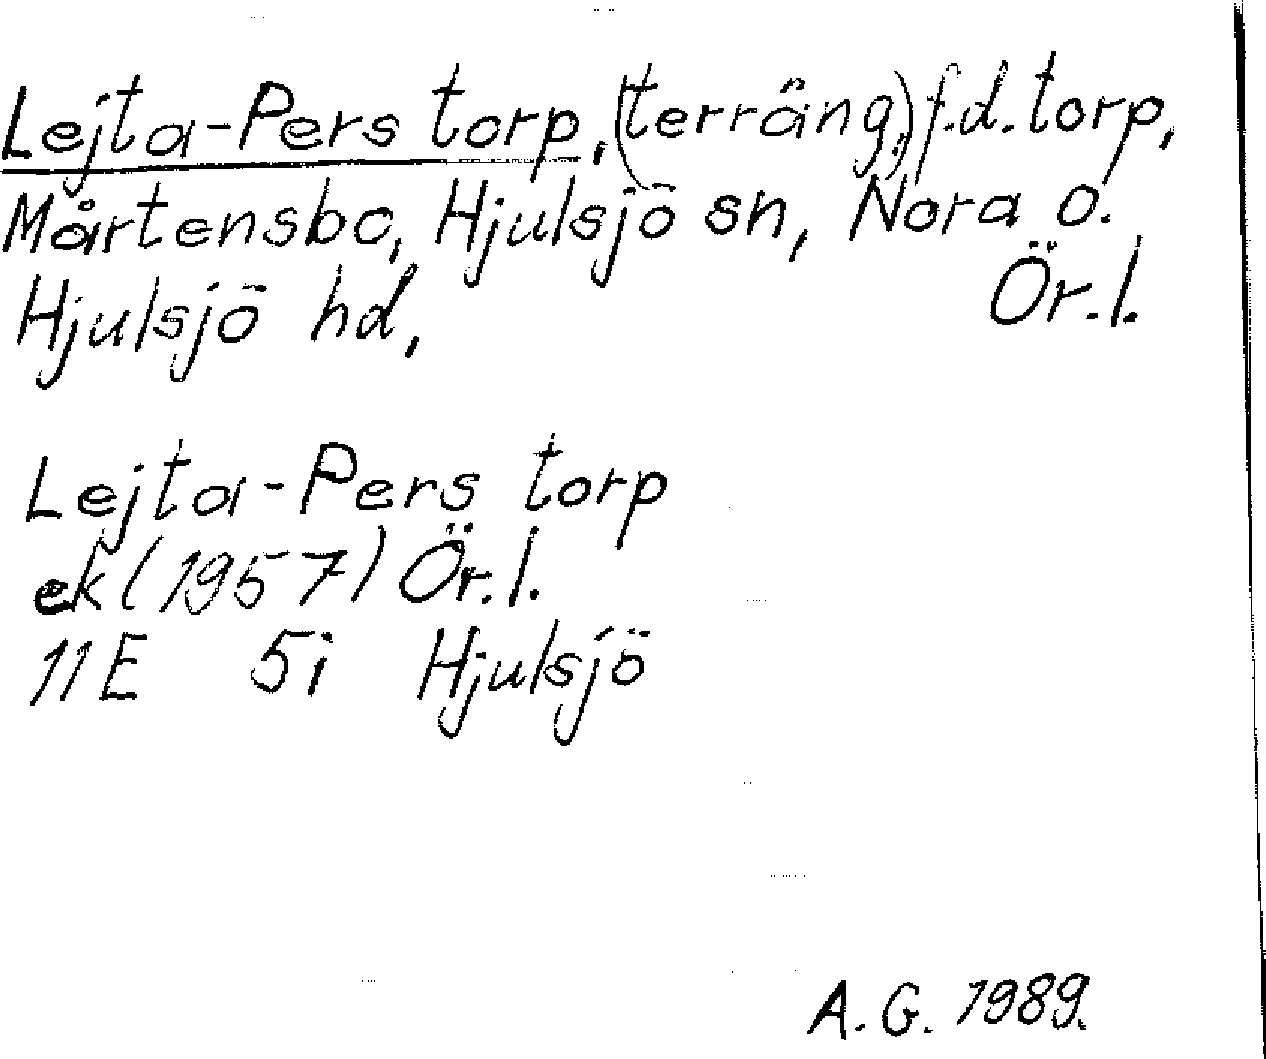 Lejta-Pers torp, (terräng), f.d. torp,
Mårtensbo, Hjulsjö sn, Nora o.
Hjulsjö hd, Ör.l.
Lejta-Pers torp
ek (1957) Ör.l.
11E 5i Hjulsjö
A.G. 1989.